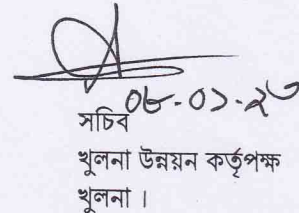 ০৮-০১-২৩
সচিব
খুলনা উন্নয়ন কর্তৃপক্ষ
খুলনা ।